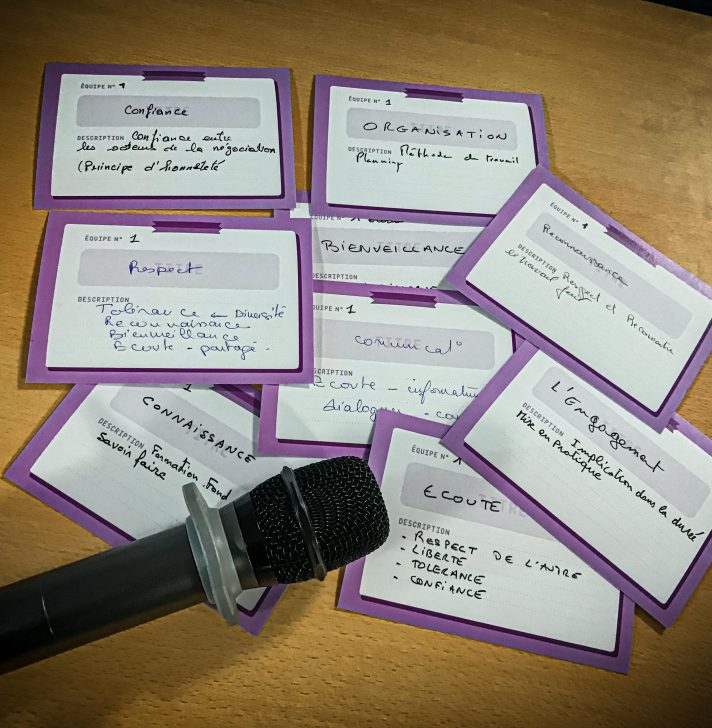 ÉQUIPE N° 1
Confiance
DESCRIPTION Confiance entre
les acteurs de la négociation
(Principe d'honnêteté
ÉQUIPE N° 1
ORGANISATION
DESCRIPTION Méthode de travail
Planning
BIENVEILLANCE
DESCRIPTION
ÉQUIPE N° 1
Reconnaissance
DESCRIPTION Respect et Reconnaitre
le travail
ÉQUIPE N° 1
Respect
DESCRIPTION
Tolérance ← Diversité
Reconnaissance
Bienveillance
Ecoute - partage.
ÉQUIPE N° 1
comunicat°
Ecoute - informatio
dialogue - co
1
CONNAISSANCE
DESCRIPTION Formation. Fond
Savoir faire
L'Engagement
DESCRIPTION Implication dans la durée
Mise en pratique
ÉQUIPE N° 1
TITRE
ECOUTE
DESCRIPTION
- RESPECT DE L'AUTRE
- LIBERTE
- TOLERANCE
- CONFIANCE